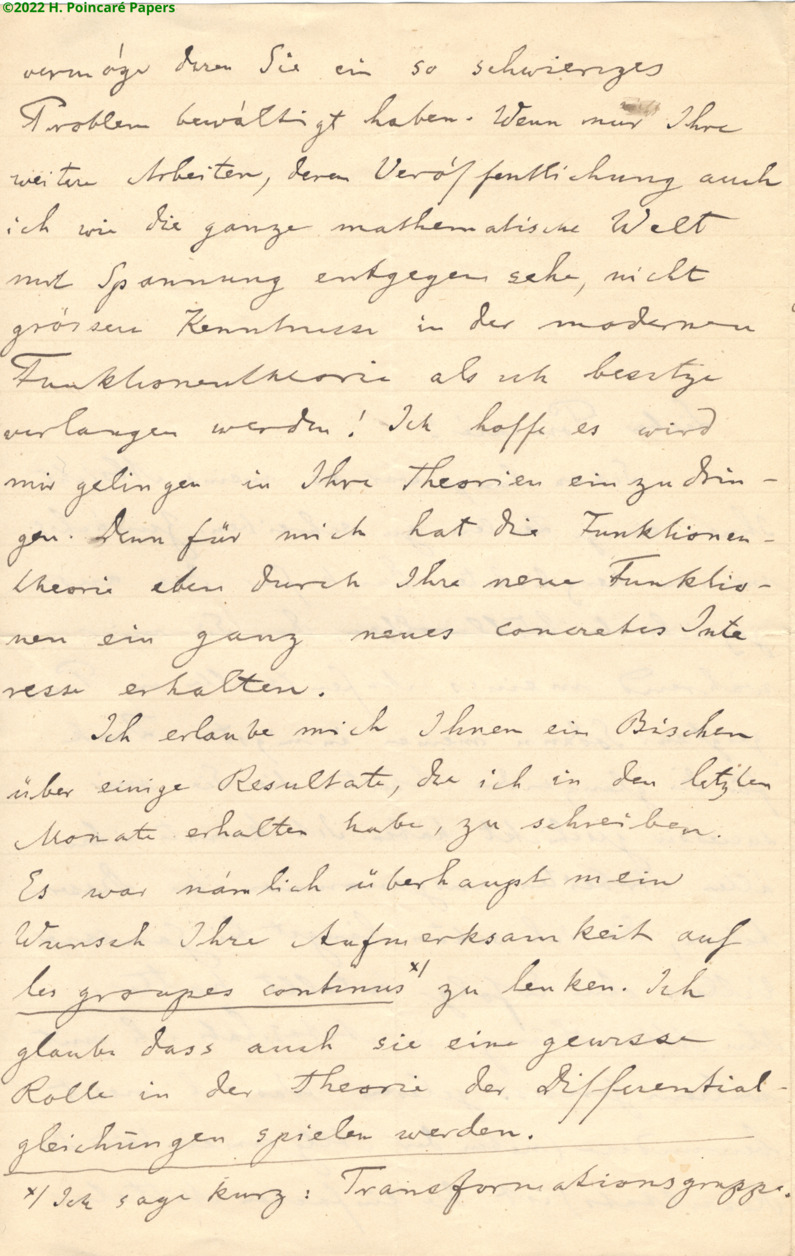 ©2022 H. Poincaré Papers
vermöge deren Sie ein so schwieriges
Problem bewältigt haben. Wenn nur Ihre
weitere Arbeiten, deren Veröffentlichung auch
ich wie die ganze mathematische Welt
mit Spannung entgegen sehe, nicht
grössere Kenntnisse in der modernen
Funktionentheorie als ich besitze
verlangen werden! Ich hoffe es wird
mir gelingen in Ihre Theorien einzudrin-
gen. Denn für mich hat die Funktionen-
theorie eben durch Ihre neue Funktio-
nen ein ganz neues concretes Inte
resse erhalten.
Ich erlaube mich Ihnen ein Bischen
über einige Resultate, die ich in den letzten
Monate erhalten habe, zu schreiben.
Es war nämlich überhaupt mein
Wunsch Ihre Aufmerksamkeit auf
les groupes continus x) zu lenken. Ich
glaube dass auch sie eine gewisse
Rolle in der Theorie der Differential-
gleichungen spielen werden.
x) Ich sage kurz: Transformationsgruppe.